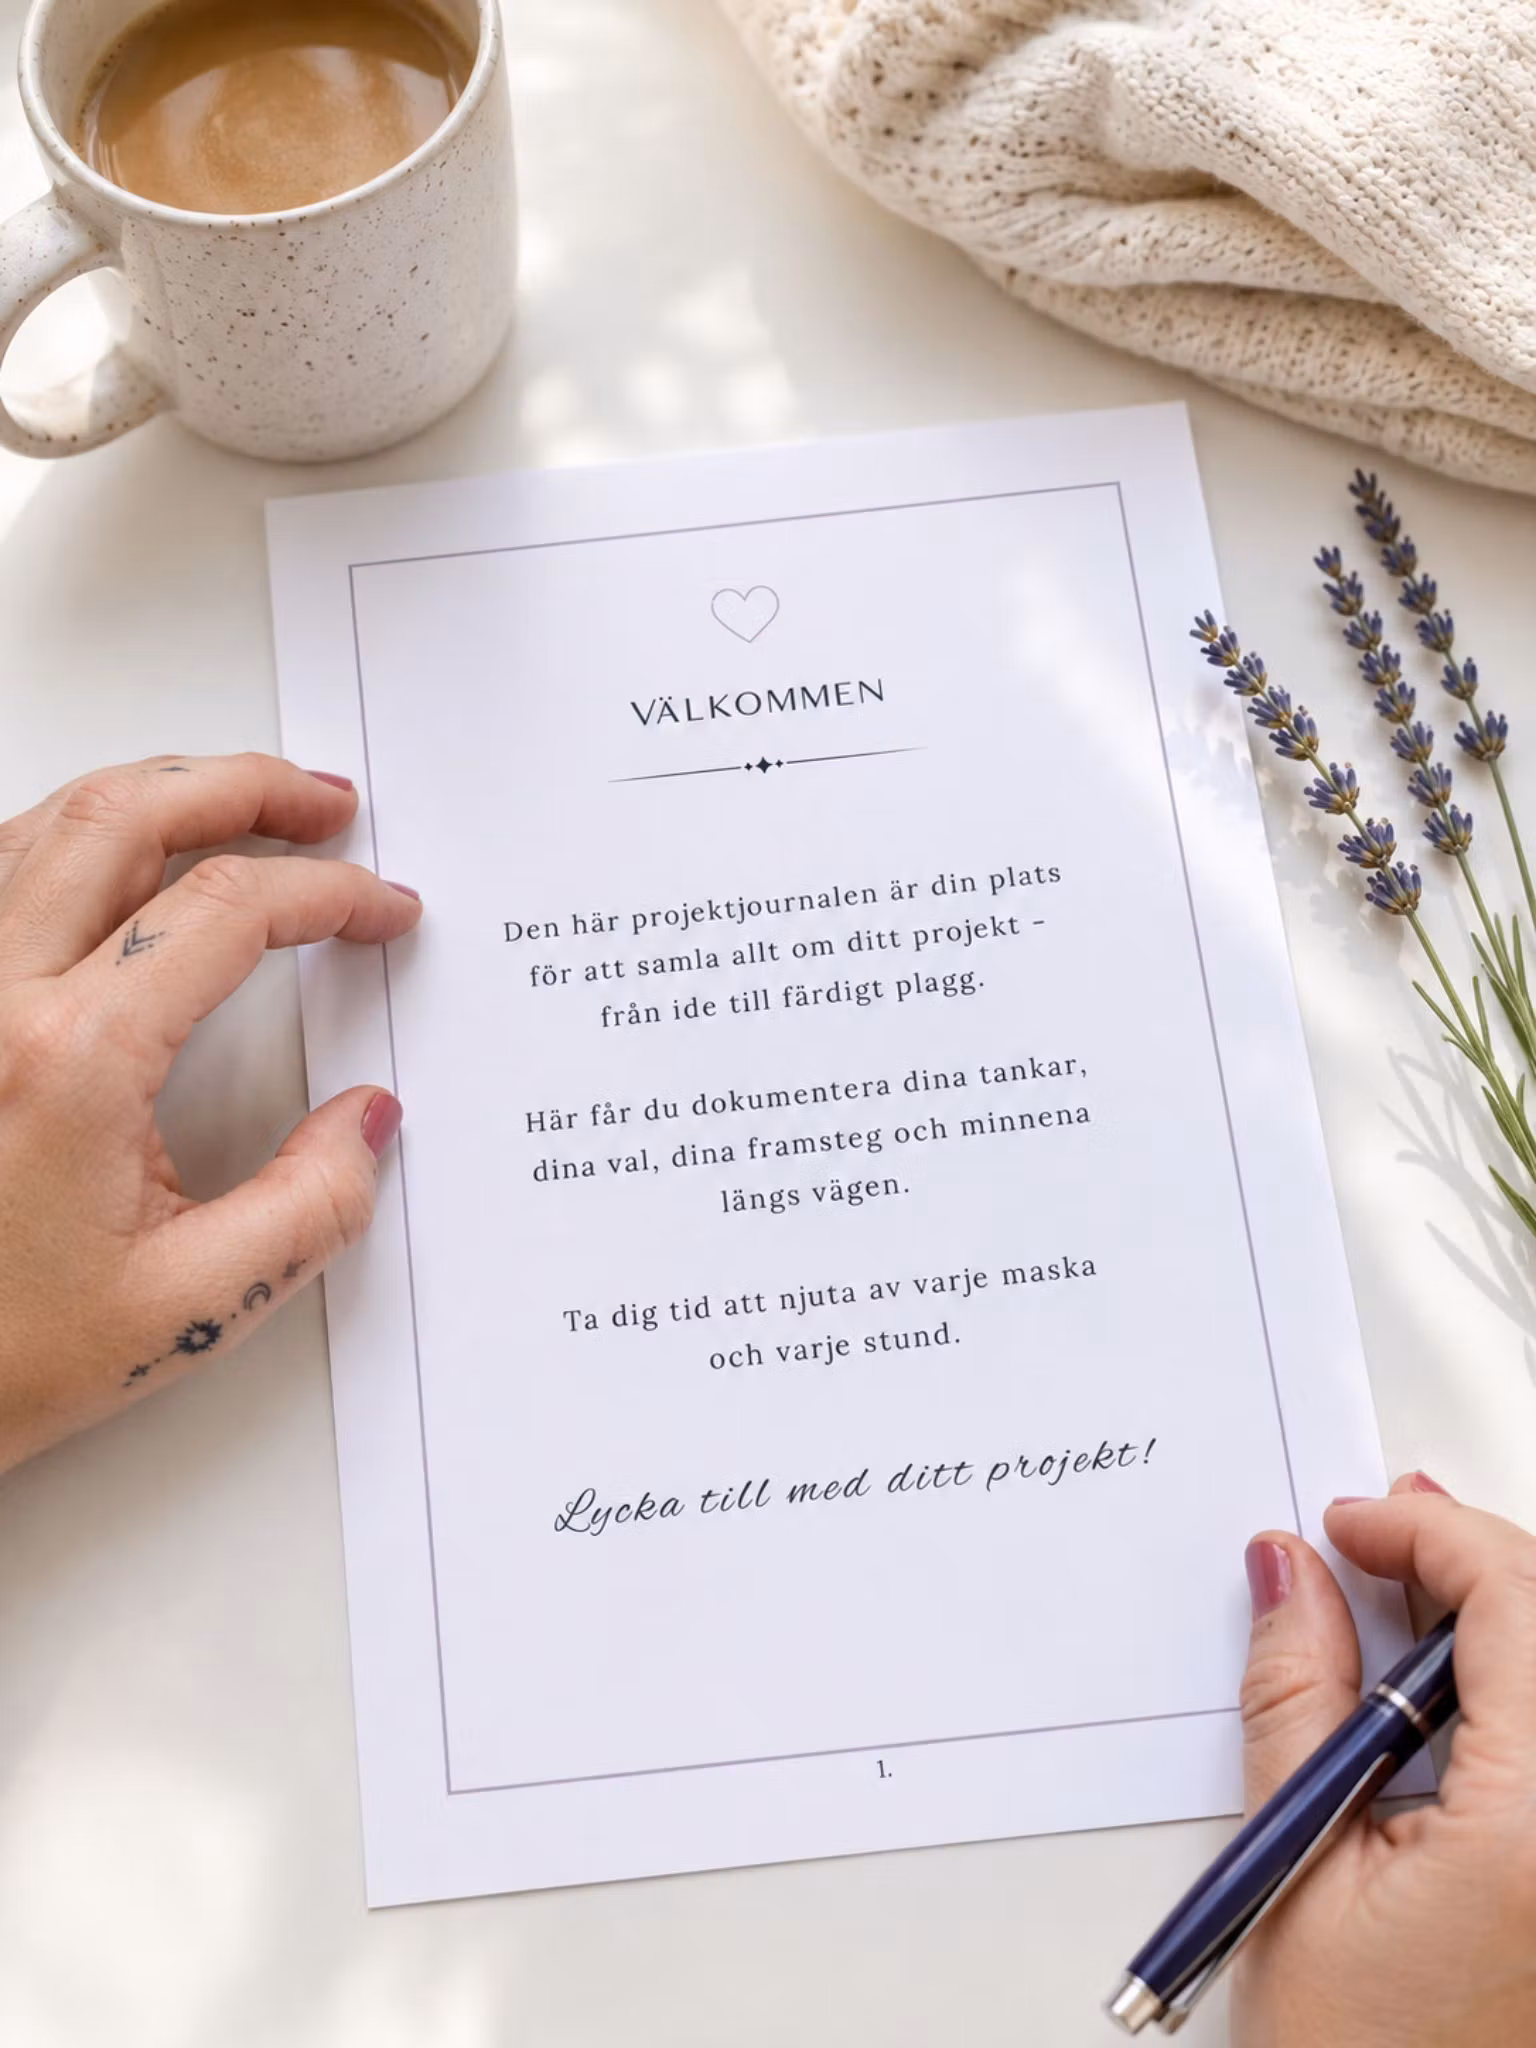 VÄLKOMMEN
Den här projektjournalen är din plats
för att samla allt om ditt projekt –
från ide till färdigt plagg.
Här får du dokumentera dina tankar,
dina val, dina framsteg och minnena
längs vägen.
Ta dig tid att njuta av varje maska
och varje stund.
Lycka till med ditt projekt!
1.